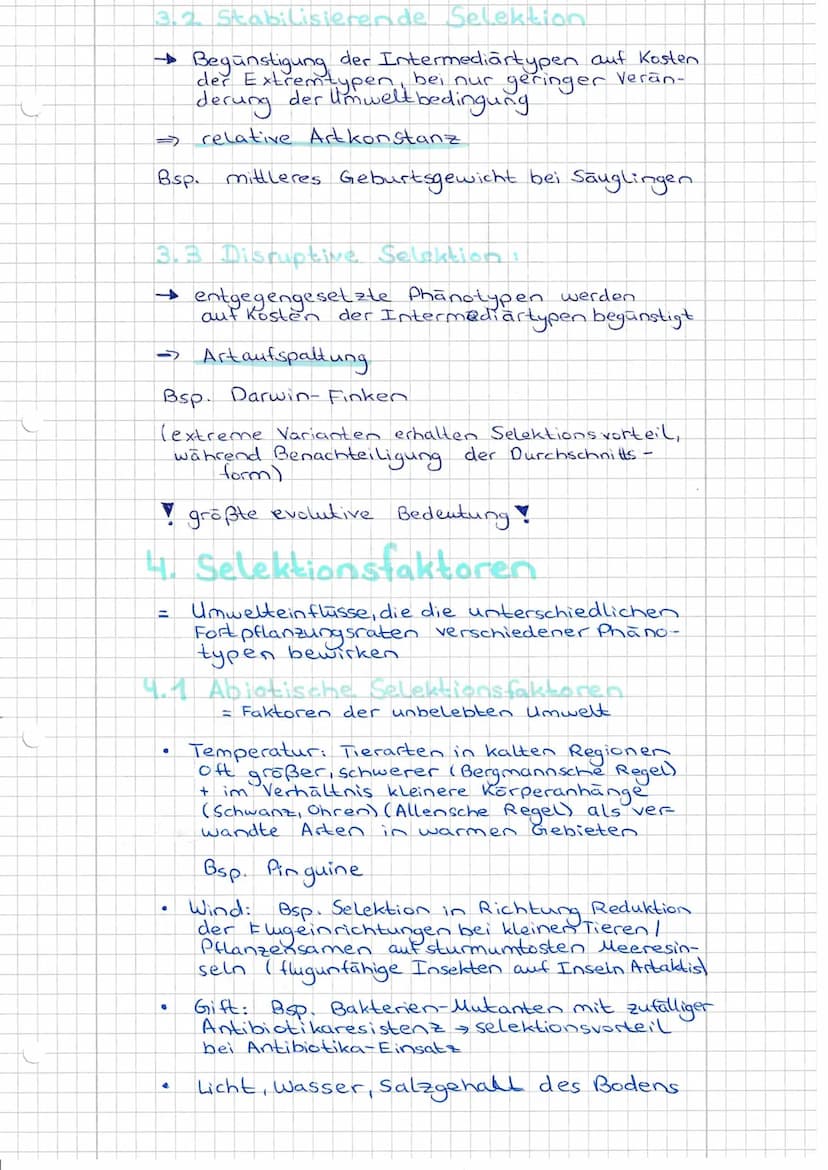 3.2 Stabilisierende Selektion
→ Begünstigung der Intermediärtypen auf Kosten
der Extremtypen, bei nur geringer Verän-
derung der Umweltbedingung
⇒ relative Artkonstanz
Bsp. mittleres Geburtsgewicht bei Säuglingen
3.3 Disruptive Selektion:
→ entgegengesetzte Phänotypen werden
auf Kosten der Intermediärtypen begünstigt
⇒ Artaufspaltung
Bsp. Darwin-Finken
(extreme Varianten erhalten Selektionsvorteil,
während Benachteiligung der Durchschnitts-
form)
! größte evolutive Bedeutung!
4. Selektionsfaktoren
= Umwelteinflüsse, die die unterschiedlichen
Fortpflanzungsraten verschiedener Phäno-
typen bewirken
4.1 Abiotische Selektionsfaktoren
= Faktoren der unbelebten Umwelt
• Temperatur: Tierarten in kalten Regionen
oft größer, schwerer (Bergmannsche Regel)
+ im Verhältnis kleinere Körperanhänge
(Schwanz, Ohren) (Allensche Regel) als ver-
wandte Arten in warmen Gebieten
Bsp. Pinguine
• Wind: Bsp. Selektion in Richtung Reduktion
der Flugeinrichtungen bei kleinen Tieren /
Pflanzensamen auf sturmumtosten Meeresin-
seln (flugunfähige Insekten auf Inseln Artaktis)
• Gift: Bsp. Bakterien-Mutanten mit zufälliger
Antibiotikaresistenz → selektionsvorteil
bei Antibiotika-Einsatz
• Licht, Wasser, Salzgehalt des Bodens